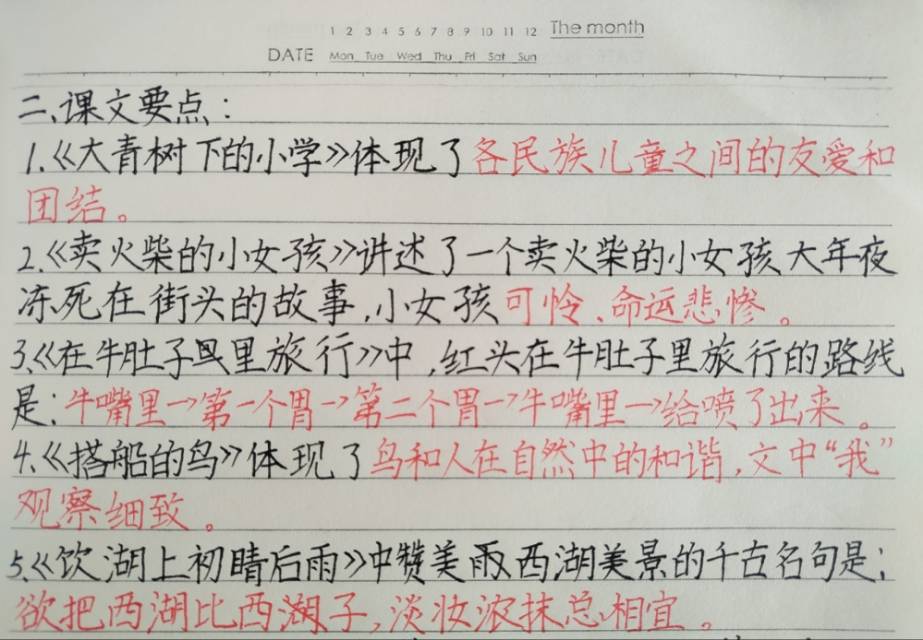 1 2 3 4 5 6 7 8 9 10 11 12 The month
DATE Mon Tue Wed Thu Fri Sat Sun
二、课文要点：
1.《大青树下的小学》体现了各民族儿童之间的友爱和
团结。
2.《卖火柴的小女孩》讲述了一个卖火柴的小女孩大年夜
冻死在街头的故事，小女孩可怜、命运悲惨。
3.《在牛肚子里旅行》中，红头在牛肚子里旅行的路线
是：牛嘴里→第一个胃→第二个胃→牛嘴里→给喷了出来。
4.《搭船的鸟》体现了鸟和人在自然中的和谐，文中“我”
观察细致。
5.《饮湖上初晴后雨》中赞美雨西湖美景的千古名句是：
欲把西湖比西子，淡妆浓抹总相宜。